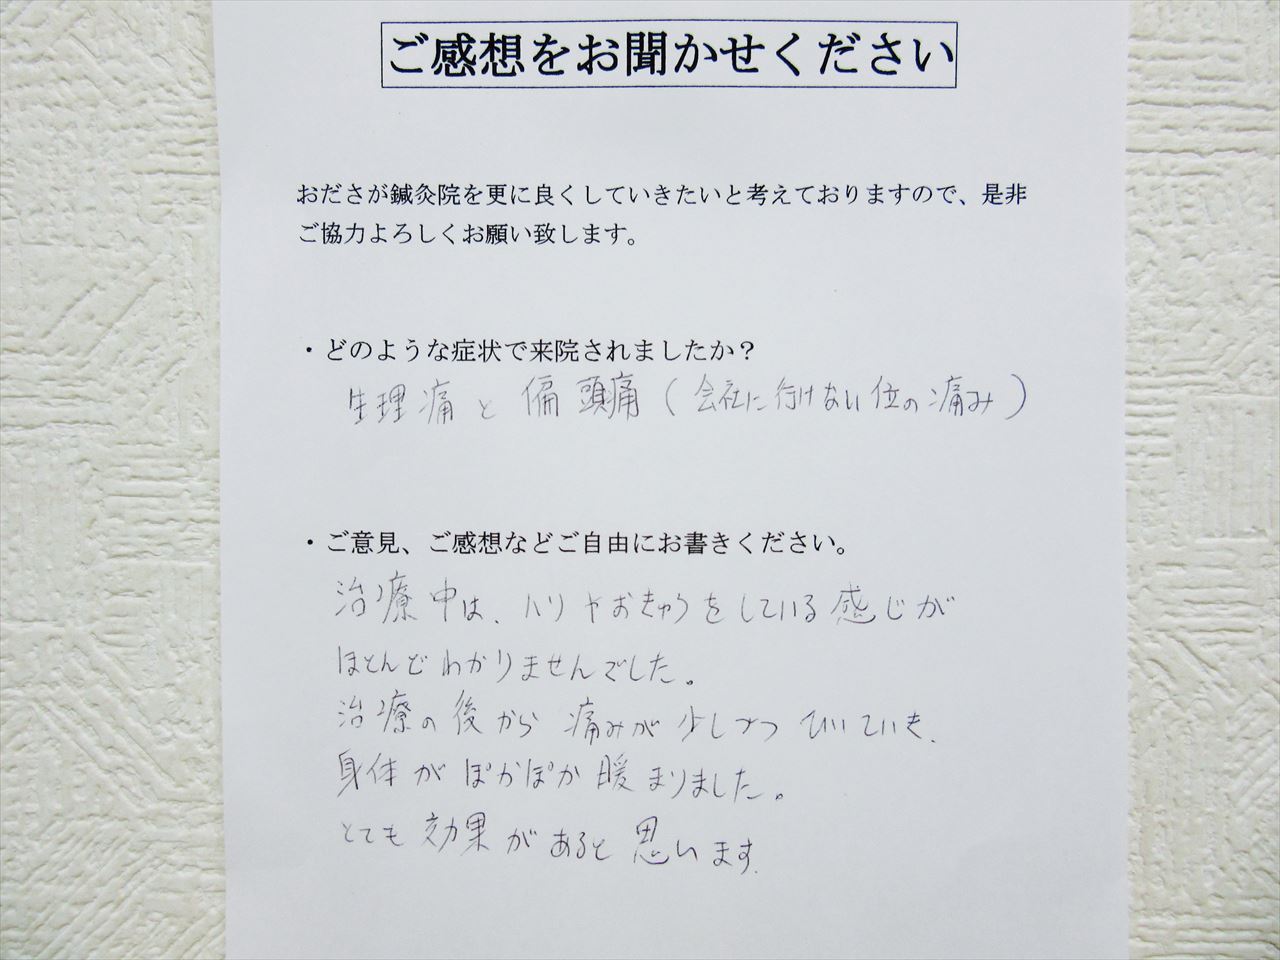 ご感想をお聞かせください
おださが鍼灸院を更に良くしていきたいと考えておりますので、是非
ご協力よろしくお願い致します。
・どのような症状で来院されましたか？
生理痛と偏頭痛（会社に行けない位の痛み）
・ご意見、ご感想などご自由にお書きください。
治療中は、ハリやおきゅうをしている感じが
ほとんどわかりませんでした。
治療の後から痛みが少しづつひいていき、
身体がぽかぽか暖まりました。
とても効果があると思います。